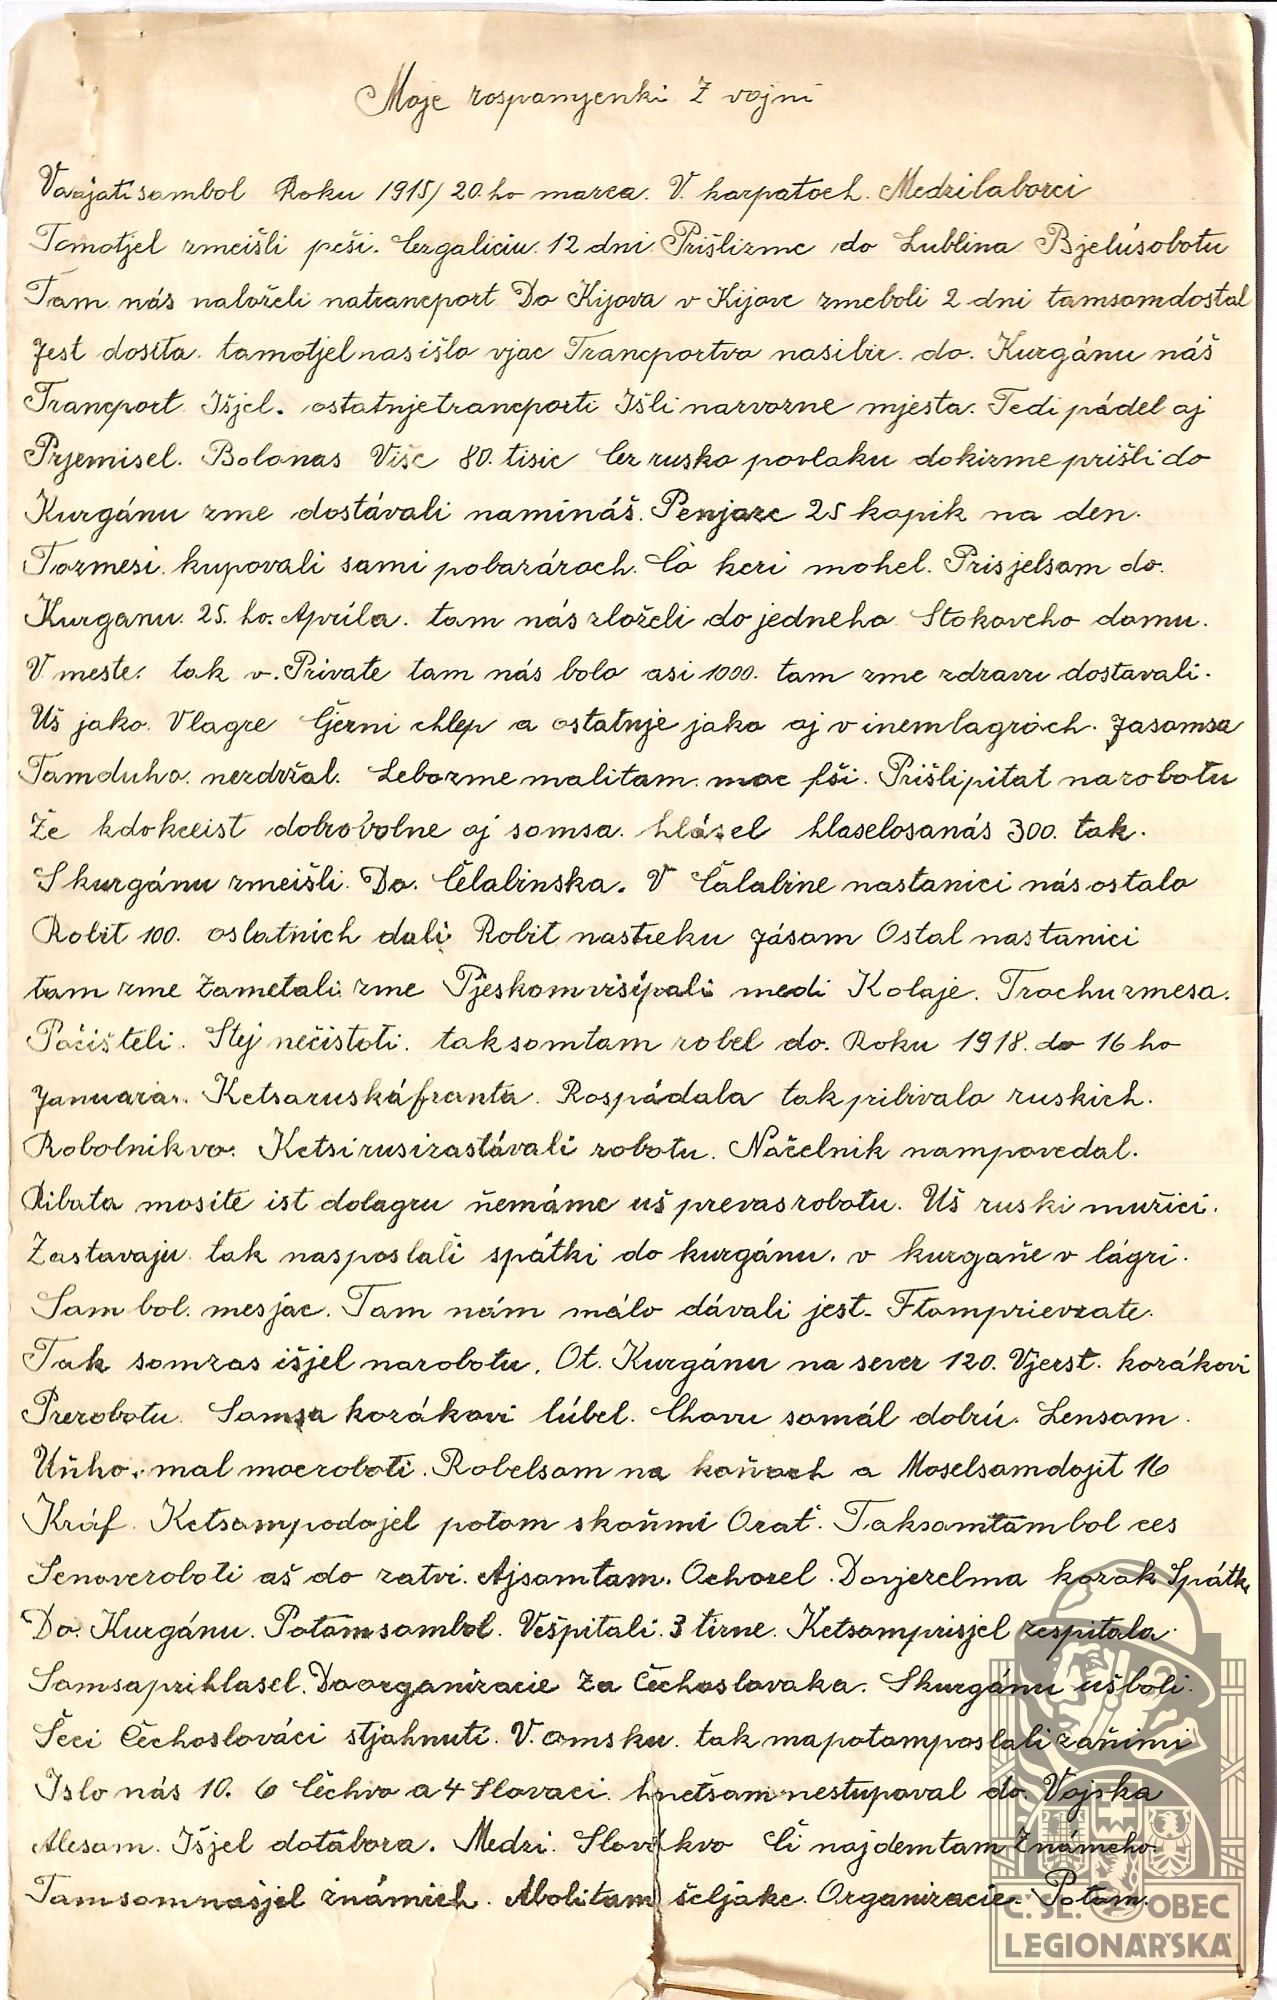 Moje rospamjenki Z vojni
Vzajatisambol Roku 1915/20.ho marca. V. karpatoch. Medzilaborci
Tamotjel zmeišli peši. Cezgaliciu. 12 dni. Prišlizme do Lublina Bjelúsobotu
Tam nás naloželi natrancport Do Kijova v Kijove zmeboli 2 dni tamsomdostal
Jest dosíta. tamotjelnasišlo vjac Trancportvo nasibir. do. Kurgánu náš
Trancport Išjel. ostatnjetrancporti Išli narvozne mjesta. Tedi pádel aj
Prjemisel. Bolonas Više 80. tisic Cez rusko povlaku dokizme prišli do
Kurgánu zme dostávali namináš. Penjaze 25 kopik na den.
Tozmesi kupovali sami pobazároch. Čo keri mohel. Prisjelsam do.
Kurganu. 25. ho. Apríla. tam nás zloželi do jedneho Stokoveho domu.
V meste. tak v. Private tam nás bolo asi 1000. tam zme zdravu dostavali.
Uš jako. Vlagre Čjerni chlep a ostatnje jako aj v inemlagroch. Jasomsa
Tamduho. nezdržal. Lebozme malitam. moc fši. Prišlipitat narobotu
Že kdokceist dobrovolne aj somsa. hlásel hlaselosanás 300. tak.
Skurgánu zmeišli. Do. Čelabinska. V Čalabine nastanici nás ostalo
Robit 100. ostatnich dali Robit nastreku Jásom Ostal nastanici
tam zme Zametali zme Pjeskomvisipali medi Kolaje. Trochuzmesa.
Počišteli. Stej nečistoti. taksomtam robel do. Roku 1918. do 16 ho
Januara. Ketsaruskáfronta. Rospádala takpribivalo ruskich.
Robotnikvo. Ketsirusizastávali robotu. Náčelnik nampovedal.
Ribata mosite ist dolagru ňemáme uš prevasrobotu. Uš ruski mužici.
Zastavaju tak nasposlaľi spátki do kurgánu. v kurgaňe v lágri.
Sam bol. mesjac. Tam nám málo dávali jest. Ftomprievzate.
Tak somzas išjel narobotu. Ot. Kurgánu na sever 120. Vjerst. kozákovi
Prerobotu. Somsa kozákovi lúbel. Chovu somál dobrú. Lensom.
Uňho. mal mocroboti. Robelsom na koňoch a Moselsomdojit 16
Kráf. Ketsompodojel potom skoňmi Orať. Taksomtambol ces
Senoveroboti aš do zatvi. Ajsomtam. Ochorel. Dovjezelma kozak Spátki
Do. Kurgánu. Potomsombol. Vešpitali. 3 tižne. Ketsomprisjel zespitala
Somsaprihlasel. Doorganizacie Za Čechoslovaka. Skurgánu ušboli.
Šeci Čechoslováci stjahnutí. V. omsku. tak mapotomposlali zaňimi
Islo nás 10. 6 Čechvo a 4 Slovaci. hnetšomnestupoval do. Vojska
Alesom. Išjel dotábora. Medzi. Slovákvo Či najdemtam Známeho.
Tamsomnašjel známich. Abolitam šeljake. Organizacie. Potom.
Č. SL. OBEC
LEGIONÁŘSKÁ